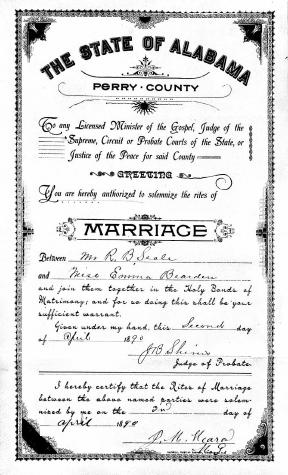 THE STATE OF ALABAMA
PERRY · COUNTY
To any Licensed Minister of the Gospel, Judge of the
Supreme, Circuit or Probate Courts of the State, or
Justice of the Peace for said County
GREETING
You are hereby authorized to solemnize the rites of
MARRIAGE
Between Mr R. B. Seale
and Miss Emma Bearden
and join them together in the Holy Bonds of
Matrimony; and for so doing this shall be your
sufficient warrant.
Given under my hand, this Second day
of April 1890
J B Shivers
Judge of Probate.
I hereby certify that the Rites of Marriage
between the above named parties were solem-
nized by me on the 3rd day of
April 1890
P. M.